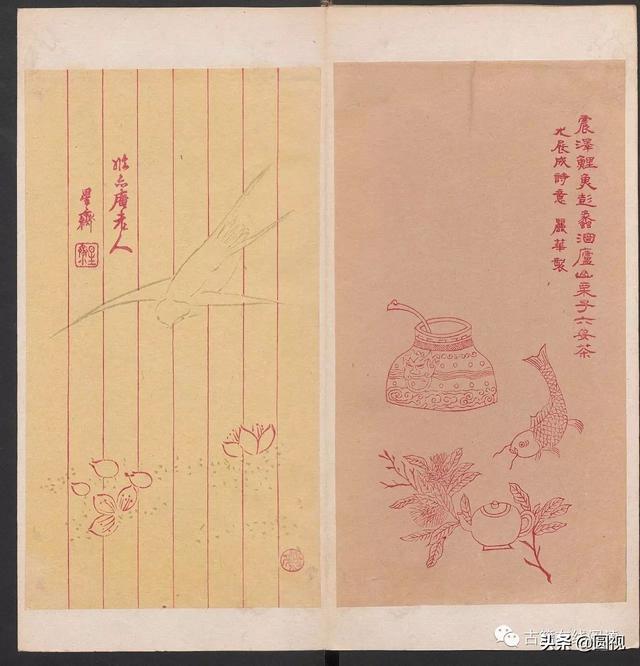 震澤鯉魚彭蠡酒廬山栗子六安茶
尤展成詩意 麗華製
忘庵老人
星齋
头条 @圆视